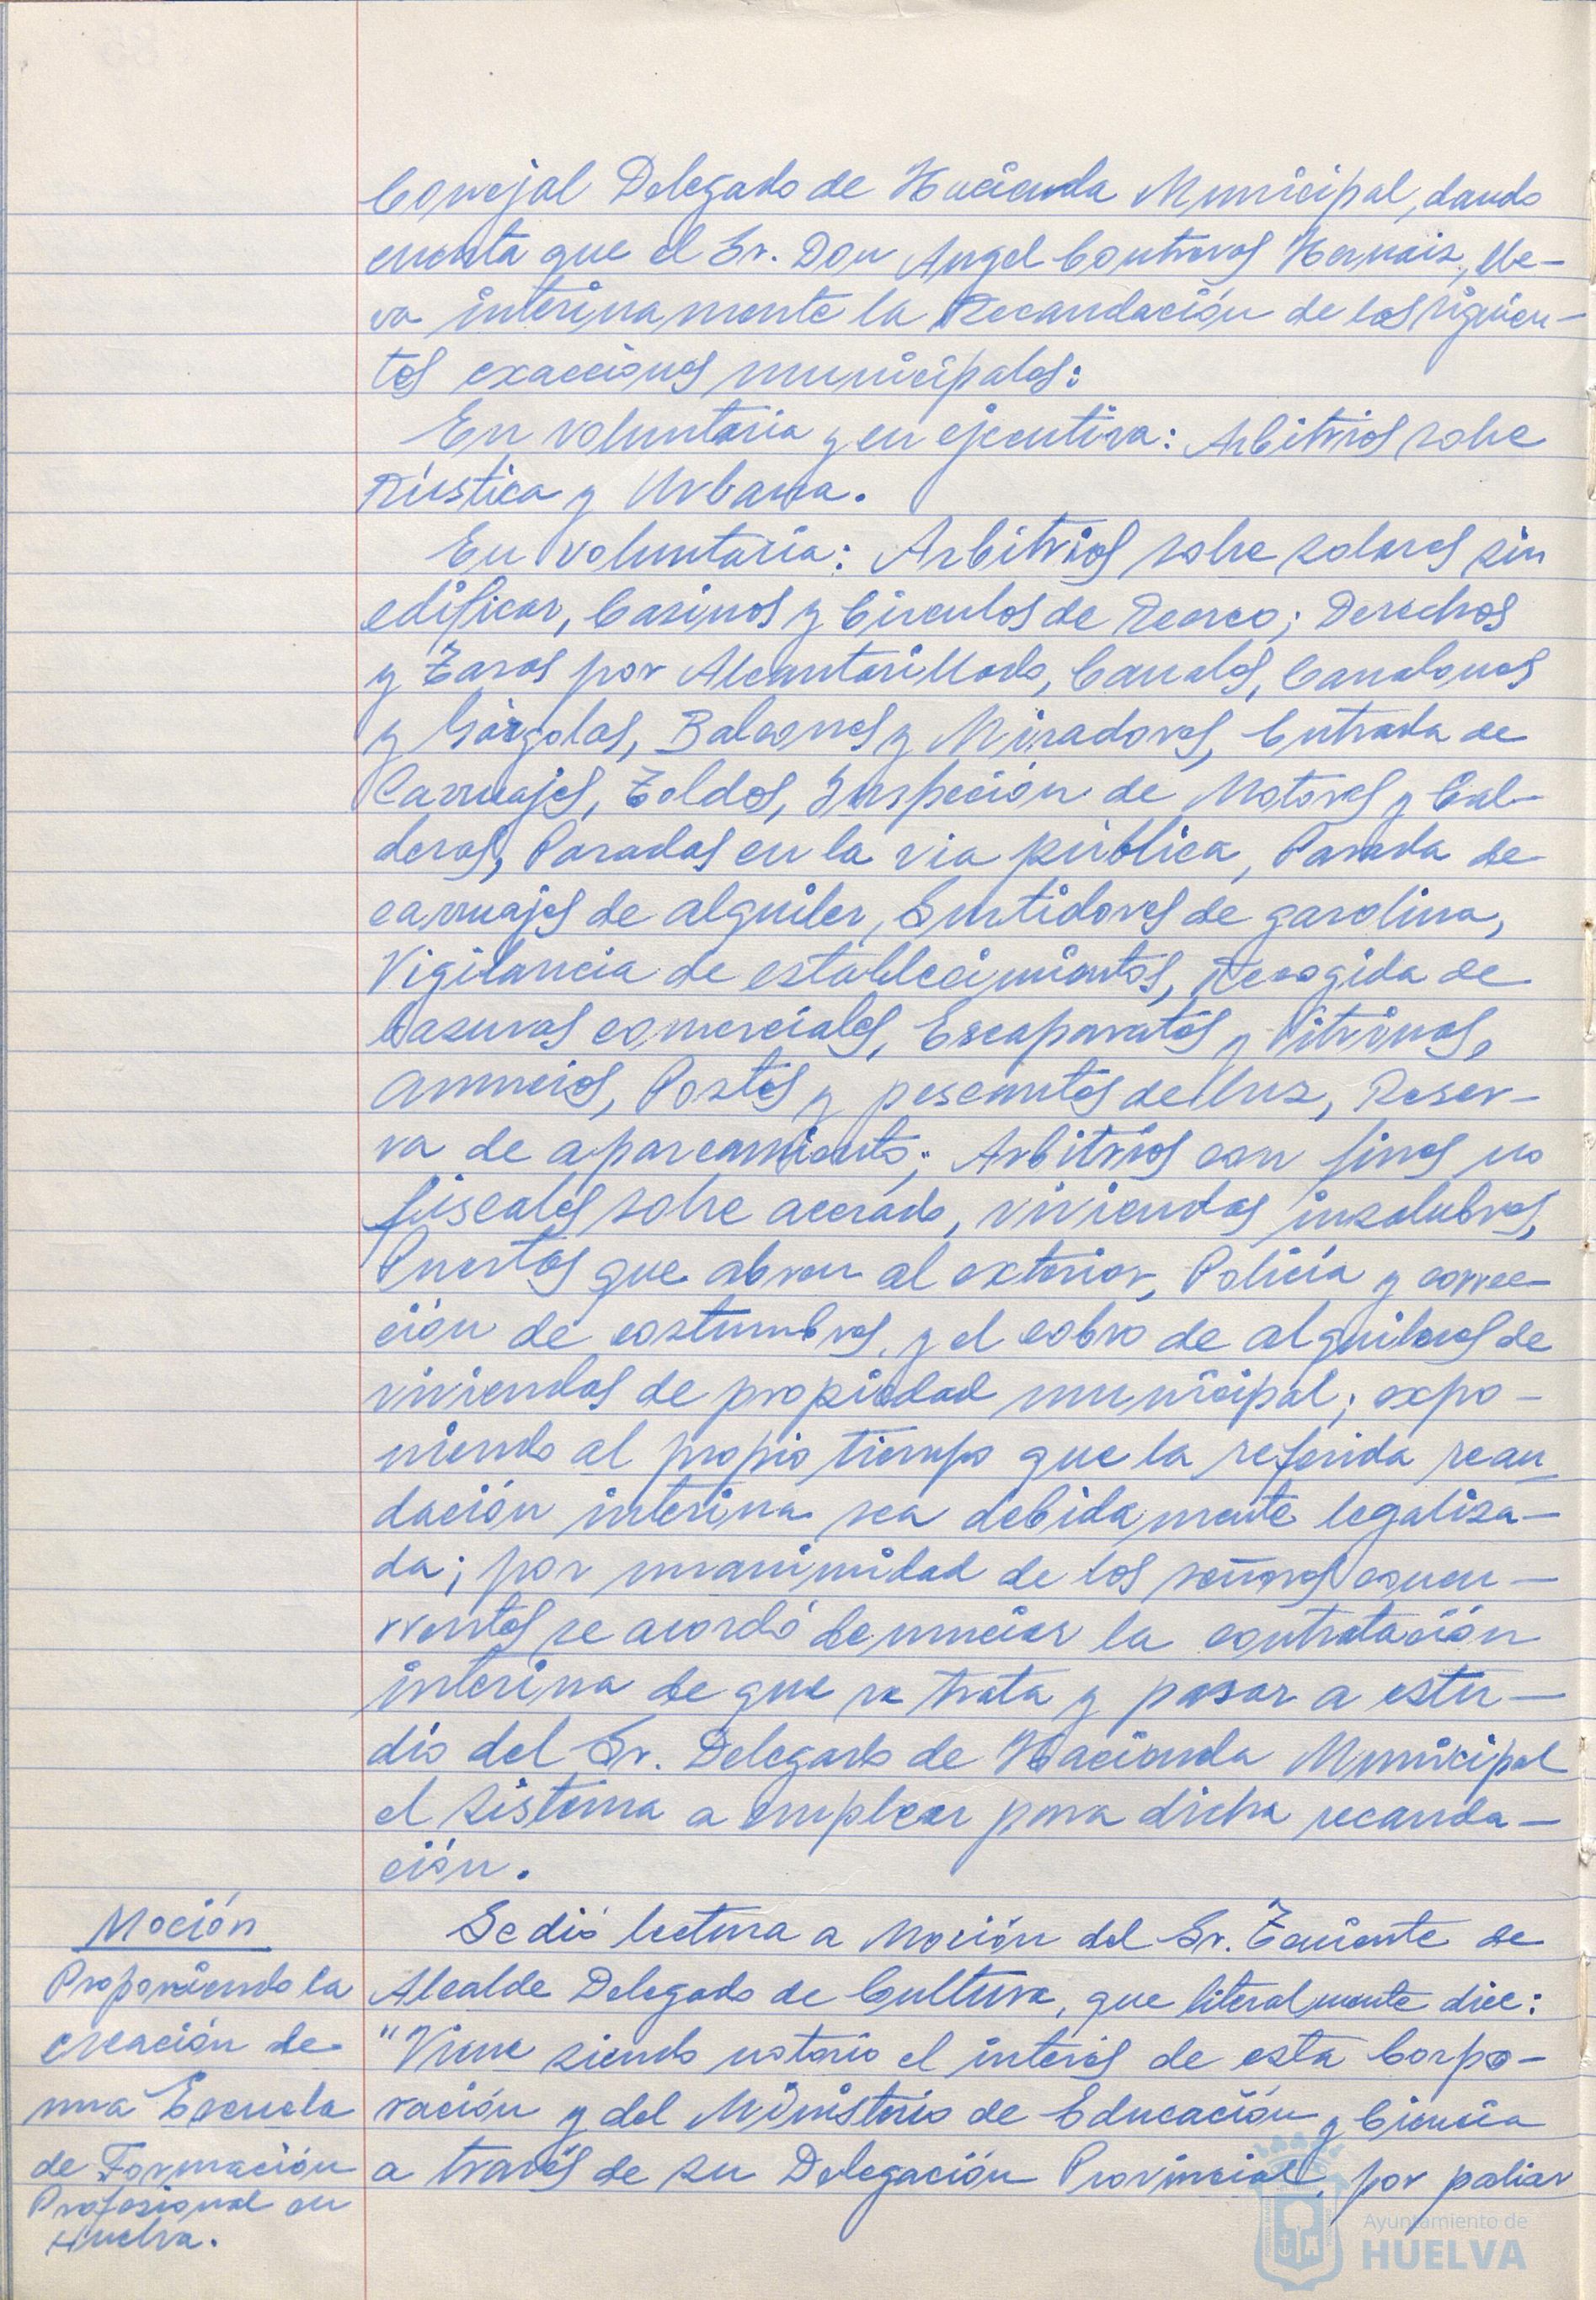 Concejal Delegado de Hacienda Municipal, dando
cuenta que el Sr. Don Angel Contreras Hernaiz, lle-
va interinamente la Recaudación de las siguien-
tes exacciones municipales:
En voluntaria y en ejecutiva: Arbitrios sobre
Rústica y Urbana.
En voluntaria: Arbitrios sobre solares sin
edificar, Casinos y Círculos de Recreo; Derechos
y Tasas por Alcantarillado, Canales, Canalones
y Gárgolas, Balcones y Miradores, Entrada de
Carruajes, Toldos, Inspección de Motores y Cal-
deras, Paradas en la via pública, Parada de
carruajes de alquiler, Surtidores de gasolina,
Vigilancia de establecimientos, Recogida de
basuras comerciales, Escaparates y Vitrinas,
anuncios, Postes y pescantes de luz, Reser-
va de aparcamiento; Arbitrios con fines no
fiscales sobre acerado, viviendas insalubres,
Puertas que abren al exterior, Policía y correc-
ción de costumbres, y el cobro de alquileres de
viviendas de propiedad municipal; expo-
niendo al propio tiempo que la referida recau
dación interina sea debidamente legaliza-
da; por unanimidad de los señores concu-
rrentes se acordó denunciar la contratación
interina de que se trata y pasar a estu-
dio del Sr. Delegado de Hacienda Municipal
el sistema a emplear para dicha recauda-
ción.
Moción
Proponiendo la
creación de
una Escuela
de Formación
Profesional en
Huelva.
Se dió lectura a Moción del Sr. Teniente de
Alcalde Delegado de Cultura, que literalmente dice:
"Viene siendo notorio el interés de esta Corpo-
ración y del Ministerio de Educación y Ciencia
a través de su Delegación Provincial, por paliar
Ayuntamiento de
HUELVA